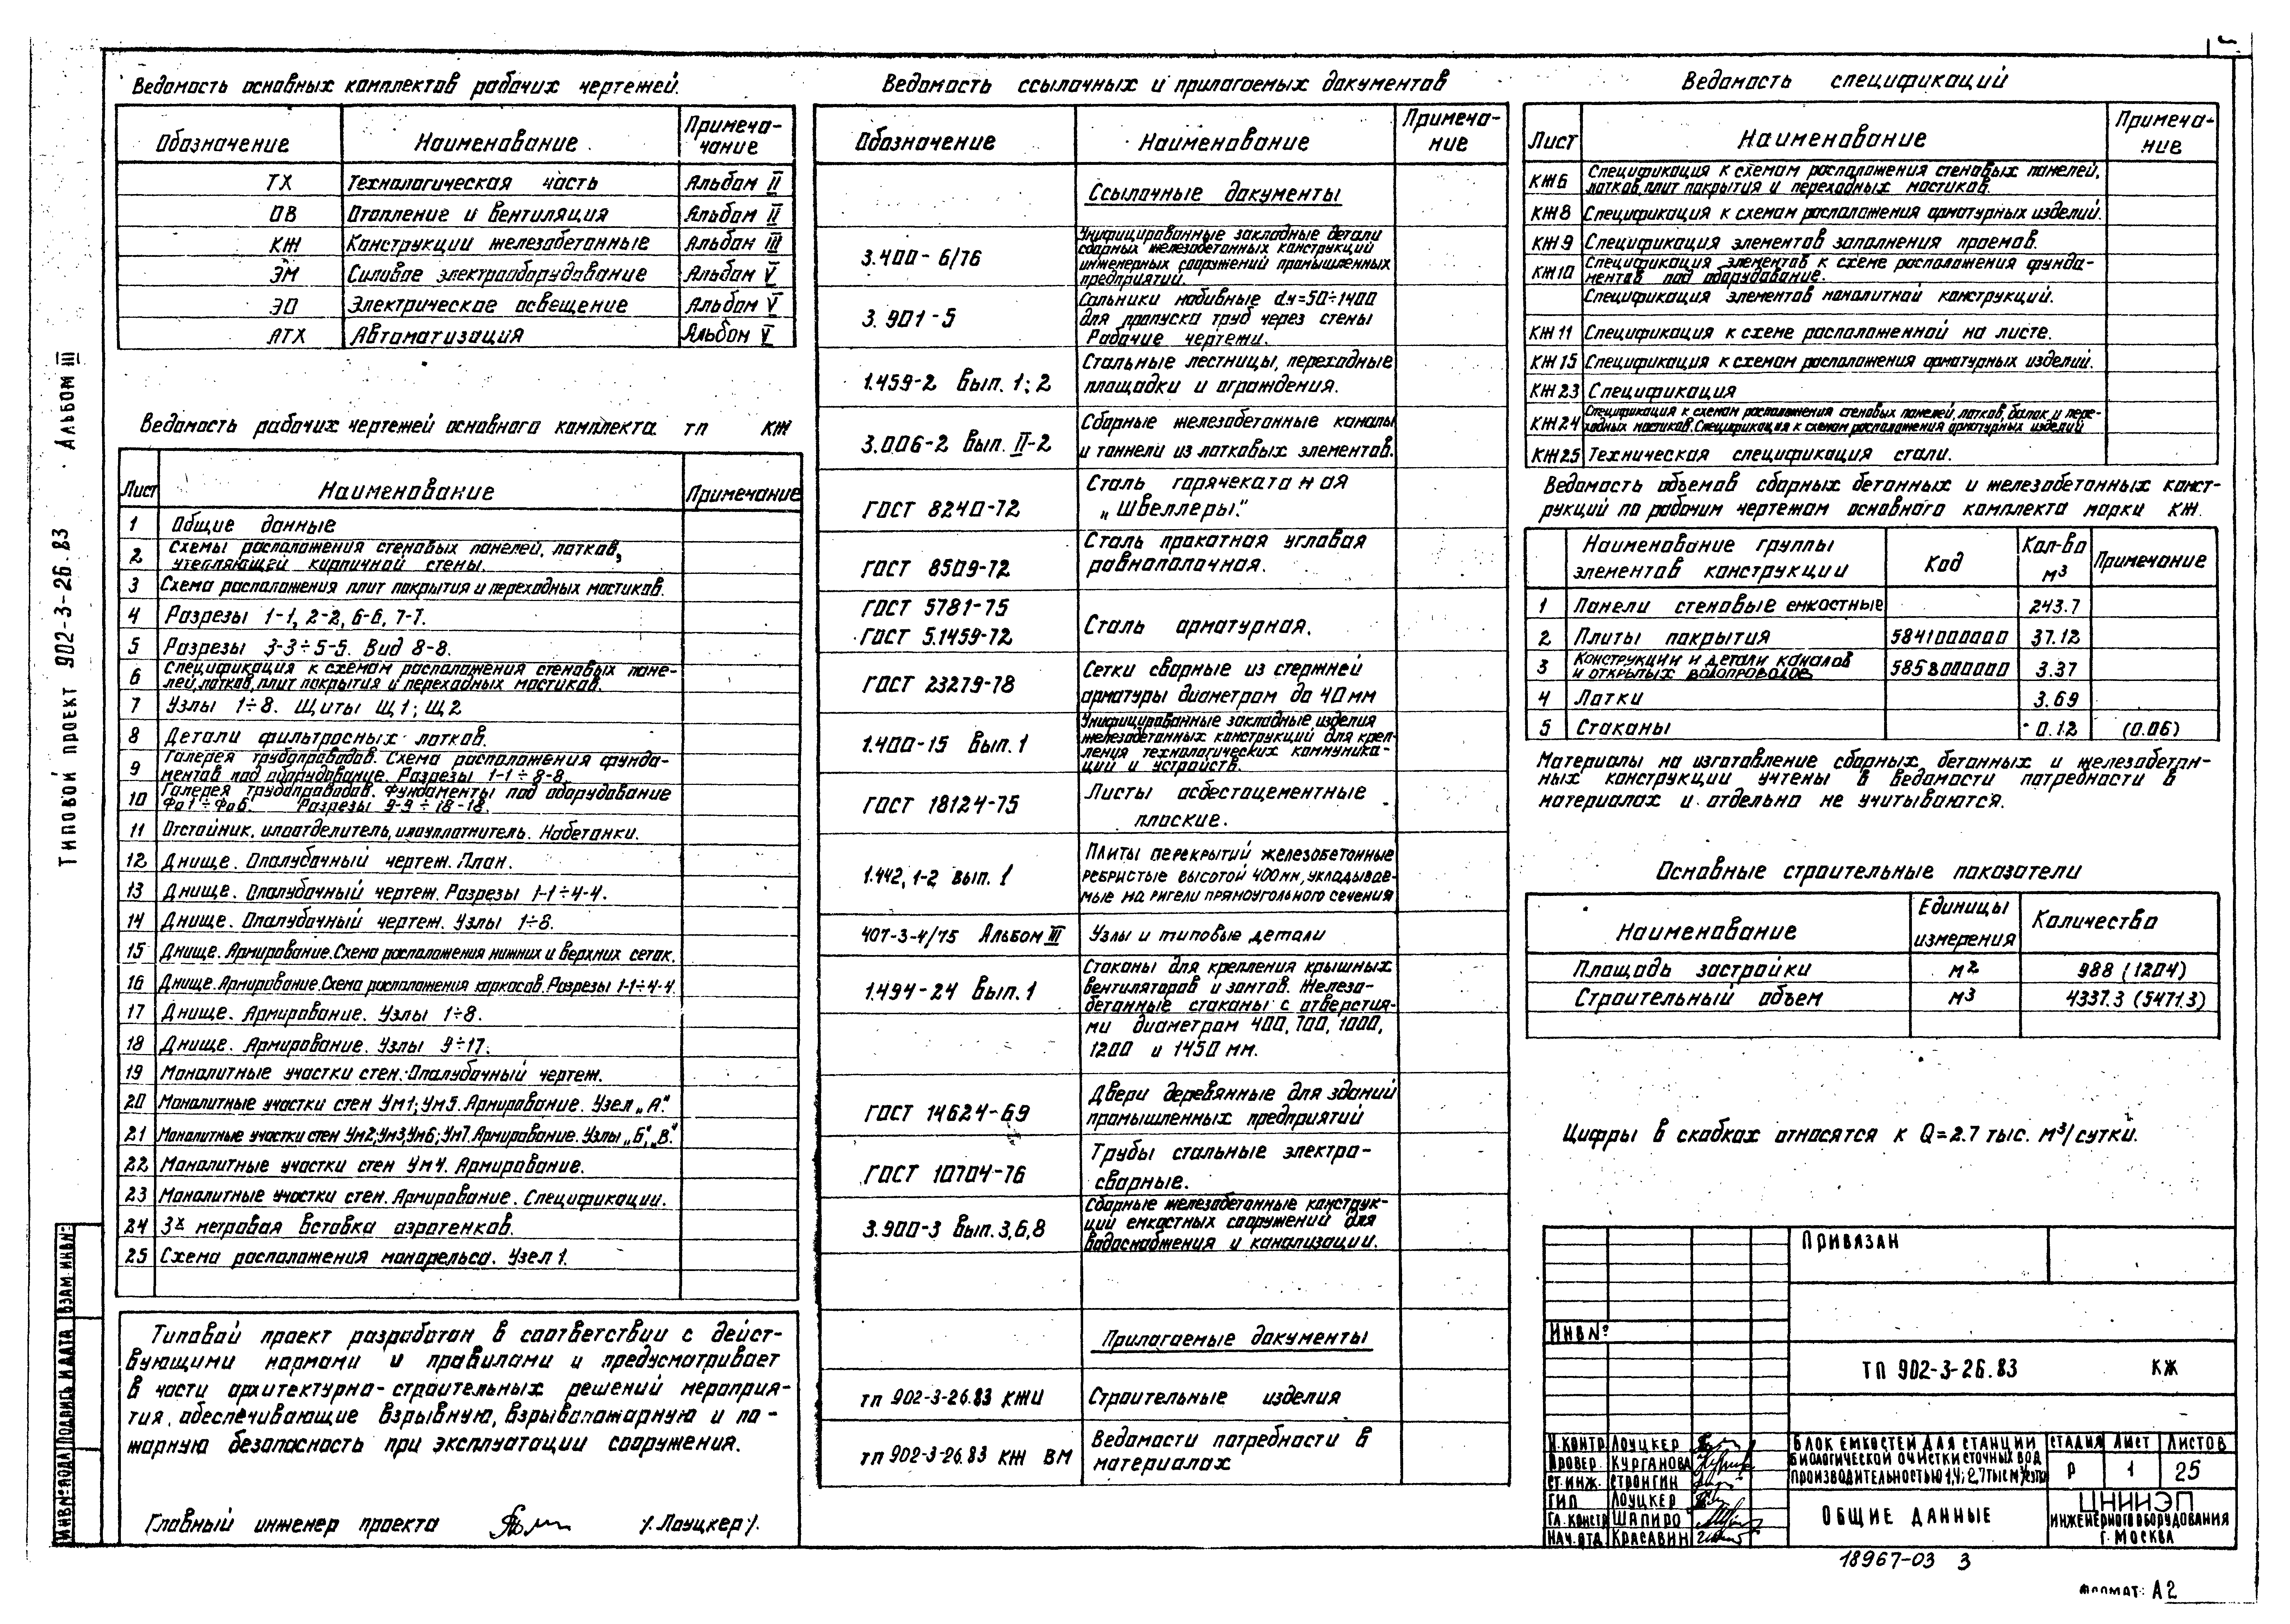 Ведомость основных комплектов рабочих чертежей.
Обозначение Наименование Примеча-
чание
ТХ Технологическая часть Альбом II
ОВ Отопление и вентиляция Альбом II
КЖ Конструкции железобетонные Альбом III
ЭМ Силовое электрооборудование Альбом V
ЭО Электрическое освещение Альбом V
АТХ Автоматизация Альбом V
Ведомость рабочих чертежей основного комплекта тп КЖ
Лист Наименование Примечание
1 Общие данные
2 Схемы расположения стеновых панелей, лотков,
утепляющей кирпичной стены.
3 Схема расположения плит покрытия и переходных мостиков.
4 Разрезы 1-1, 2-2, 6-6, 7-7.
5 Разрезы 3-3÷5-5. Вид 8-8.
6 Спецификация к схемам расположения стеновых пане-
лей, лотков, плит покрытия и переходных мостиков.
7 Узлы 1÷8. Щиты Щ1; Щ2
8 Детали фильтросных лотков.
9 Галерея трубопроводов. Схема расположения фунда-
ментов под оборудование. Разрезы 1-1÷8-8.
10 Галерея трубопроводов. Фундаменты под оборудование
Фо1÷Фо6. Разрезы 9-9÷18-18.
11 Отстойник, илоотделитель, илоуплотнитель. Набетонки.
12 Днище. Опалубочный чертеж. План.
13 Днище. Опалубочный чертеж. Разрезы 1-1÷4-4.
14 Днище. Опалубочный чертеж. Узлы 1÷8.
15 Днище. Армирование. Схема расположения нижних и верхних сеток.
16 Днище. Армирование. Схема расположения каркасов. Разрезы 1-1÷4-4.
17 Днище. Армирование. Узлы 1÷8.
18 Днище. Армирование. Узлы 9÷17.
19 Монолитные участки стен. Опалубочный чертеж.
20 Монолитные участки стен Ум1; Ум5. Армирование. Узел „А".
21 Монолитные участки стен Ум2; Ум3; Ум6; Ум7. Армирование. Узлы „Б", „В".
22 Монолитные участки стен Ум4. Армирование.
23 Монолитные участки стен. Армирование. Спецификации.
24 3х метровая вставка аэротенков.
25 Схема расположения монорельса. Узел 1.
Типовой проект разработан в соответствии с дейст-
вующими нормами и правилами и предусматривает
в части архитектурно-строительных решений мероприя-
тия, обеспечивающие взрывную, взрывопожарную и по-
жарную безопасность при эксплуатации сооружения.
Главный инженер проекта /Лоуцкер/.
Ведомость ссылочных и прилагаемых документов
Обозначение Наименование Примеча-
ние
Ссылочные документы
3.400-6/76 Унифицированные закладные детали
сборных железобетонных конструкций
инженерных сооружений промышленных
предприятий.
3.901-5 Сальники набивные dу=50÷1400
для пропуска труб через стены
Рабочие чертежи.
1.459-2 Вып. 1; 2 Стальные лестницы, переходные
площадки и ограждения.
3.006-2 Вып. II-2 Сборные железобетонные каналы
и тоннели из лотковых элементов.
ГОСТ 8240-72 Сталь горячекатаная
„Швеллеры".
ГОСТ 8509-72 Сталь прокатная угловая
равнополочная.
ГОСТ 5781-75
ГОСТ 5.1459-72 Сталь арматурная.
ГОСТ 23279-78 Сетки сварные из стержней
арматуры диаметром до 40 мм
1.400-15 Вып. 1 Унифицированные закладные изделия
железобетонных конструкций для креп-
ления технологических коммуника-
ций и устройств.
ГОСТ 18124-75 Листы асбестоцементные
плоские.
1.442, 1-2 вып. 1 Плиты перекрытий железобетонные
ребристые высотой 400мм, укладывае-
мые на ригели прямоугольного сечения
407-3-4/75 Альбом III Узлы и типовые детали
1.494-24 Вып. 1 Стаканы для крепления крышных
вентиляторов и зонтов. Железо-
бетонные стаканы с отверстия-
ми диаметром 400, 700, 1000,
1200 и 1450 мм.
ГОСТ 14624-69 Двери деревянные для зданий
промышленных предприятий
ГОСТ 10704-76 Трубы стальные электро-
сварные.
3.900-3 Вып. 3,6,8 Сборные железобетонные конструк-
ций емкостных сооружений для
водоснабжения и канализации.
Прилагаемые документы
тп 902-3-26.83 КЖИ Строительные изделия
тп 902-3-26.83 КЖ ВМ Ведомости потребности в
материалах
Ведомость спецификаций
Лист Наименование Примеча-
ние
КЖ6 Спецификация к схемам расположения стеновых панелей,
лотков, плит покрытия и переходных мостиков.
КЖ8 Спецификация к схемам расположения арматурных изделий.
КЖ9 Спецификация элементов заполнения проемов.
КЖ10 Спецификация элементов к схеме расположения фунда-
ментов под оборудование.
Спецификация элементов монолитной конструкций.
КЖ11 Спецификация к схеме расположенной на листе.
КЖ15 Спецификация к схемам расположения арматурных изделий.
КЖ23 Спецификация
КЖ24 Спецификация к схемам расположения стеновых панелей, лотков, балок и пере-
ходных мостиков. Спецификация к схемам расположения арматурных изделий
КЖ25 Техническая спецификация стали.
Ведомость объемов сборных бетонных и железобетонных конст-
рукций по рабочим чертежам основного комплекта марки КЖ.
Наименование группы
элементов конструкции Код Кол-во
м3 Примечание
1 Панели стеновые емкостные 243.7
2 Плиты покрытия 5841000000 37.12
3 Конструкции и детали каналов
и открытых водопроводов 5858000000 3.37
4 Лотки 3.69
5 Стаканы 0.12 (0.06)
Материалы на изготовление сборных бетонных и железобетон-
ных конструкции учтены в ведомости потребности в
материалах и отдельно не учитываются.
Основные строительные показатели
Наименование Единицы
измерения Количество
Площадь застройки м2 988 (1204)
Строительный объем м3 4337.3 (5471.3)
Цифры в скобках относятся к Q=2.7 тыс. м3/сутки.
Привязан
ИНВ№
ТП 902-3-26.83 КЖ
Н.контр Лоуцкер
Провер. Курганова
Ст.инж. Стронгин
ГИП Лоуцкер
Гл.констр Шапиро
Нач.отд. Красавин
Блок емкостей для станции
биологической очистки сточных вод
производительностью 1,4; 2,7 тыс м3/сутки
Стадия Лист Листов
Р 1 25
Общие данные
ЦНИИЭП
инженерного оборудования
г. Москва
18967-03 3
Формат: А2
Типовой проект 902-3-26.83 Альбом III
Инв.№ подл. Подпись и дата Взам.инв.№